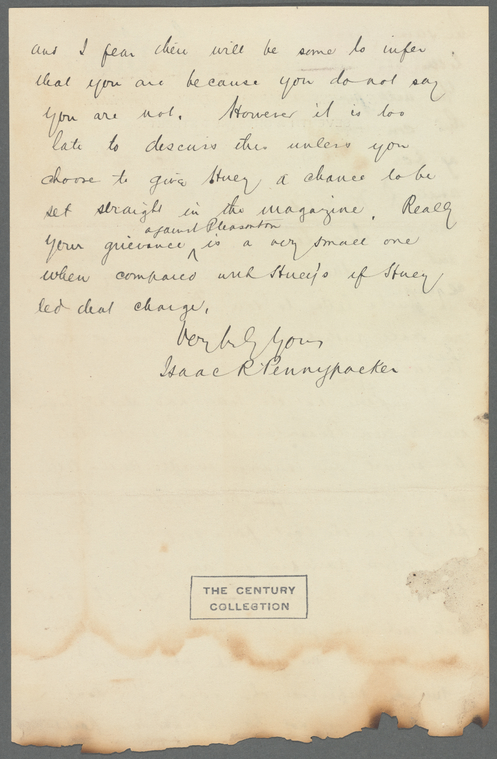 and I fear there will be some to infer
that you are because you do not say
you are not. However it is too
late to discuss this unless you
choose to give Huey a chance to be
set straight in the magazine. Really
against Pleasonton
your grievance ^ is a very small one
when compared with Huey's if Huey
led that charge.
Very truly Yours
Isaac R. Pennypacker
THE CENTURY
COLLECTION